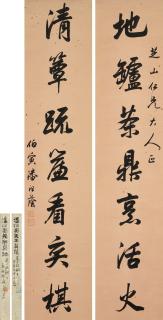 芝山仁兄大人正
地鑪茶鼎烹活火
清簟疏簾看奕棋
伯寅潘祖蔭